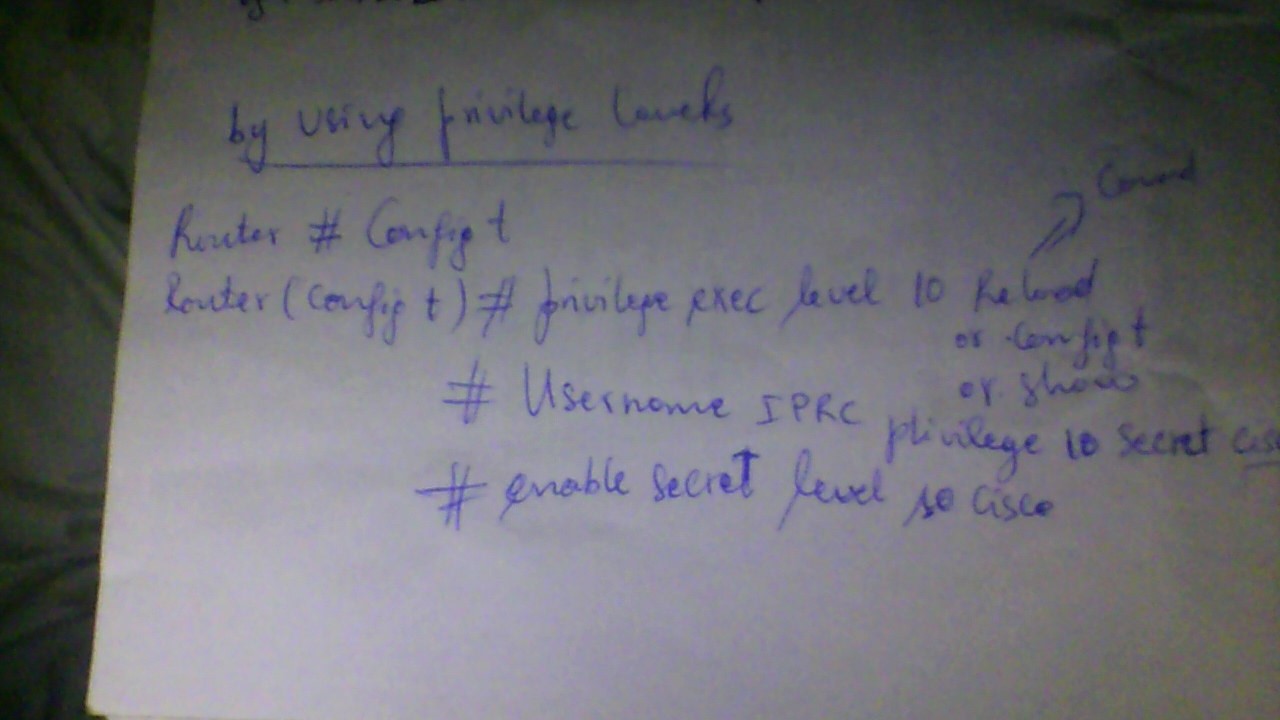 by Using privilege Levels
Router # Config t
Router (Config t) # privilege exec level 10 Reload
or config t
or show
# Username IPRC privilege 10 Secret
# enable secret level 10 cisco